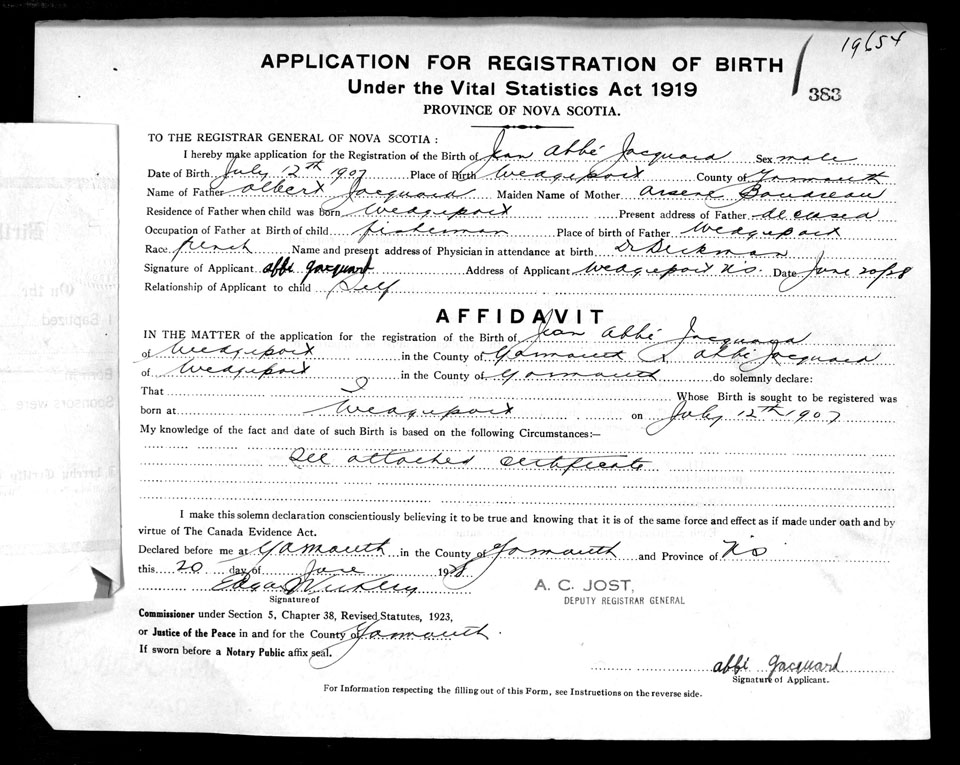 19654
APPLICATION FOR REGISTRATION OF BIRTH
383
Under the Vital Statistics Act 1919
PROVINCE OF NOVA SCOTIA.
TO THE REGISTRAR GENERAL OF NOVA SCOTIA :
I hereby make application for the Registration of the Birth of Jean Abbé Jacquard Sex male
Date of Birth July 12th 1907 Place of Birth Wedgeport County of Yarmouth
Name of Father Albert Jacquard Maiden Name of Mother Arsene Boudreau
Residence of Father when child was Born Wedgeport Present address of Father deceased
Occupation of Father at Birth of child fisherman Place of birth of Father Wedgeport
Race french Name and present address of Physician in attendance at birth Dr
Signature of Applicant abbé Jacquard Address of Applicant Wedgeport N.S. Date June 20/28
Relationship of Applicant to child Self
AFFIDAVIT
IN THE MATTER of the application for the registration of the Birth of Jean Abbé Jacquard
of Wedgeport in the County of Yarmouth I, abbé Jacquard
of Wedgeport in the County of Yarmouth do solemnly declare:
That I Whose Birth is sought to be registered was
born at Wedgeport on July 12th 1907
My knowledge of the fact and date of such Birth is based on the following Circumstances:—
See attached certificate
I make this solemn declaration conscientiously believing it to be true and knowing that it is of the same force and effect as if made under oath and by
virtue of The Canada Evidence Act.
Declared before me at Yarmouth in the County of Yarmouth and Province of N.S
this 20 day of June 1928
Edgar
A. C. JOST,
DEPUTY REGISTRAR GENERAL
Signature of
Commissioner under Section 5, Chapter 38, Revised Statutes, 1923,
or Justice of the Peace in and for the County of Yarmouth.
If sworn before a Notary Public affix seal.
abbé Jacquard
Signature of Applicant.
For Information respecting the filling out of this Form, see Instructions on the reverse side.